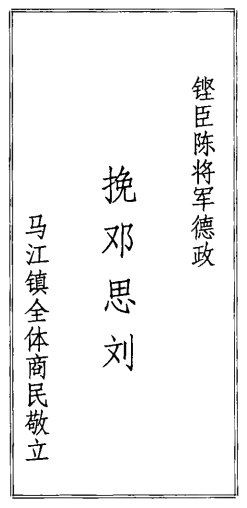 铿臣陈将军德政
挽邓思刘
马江镇全体商民敬立